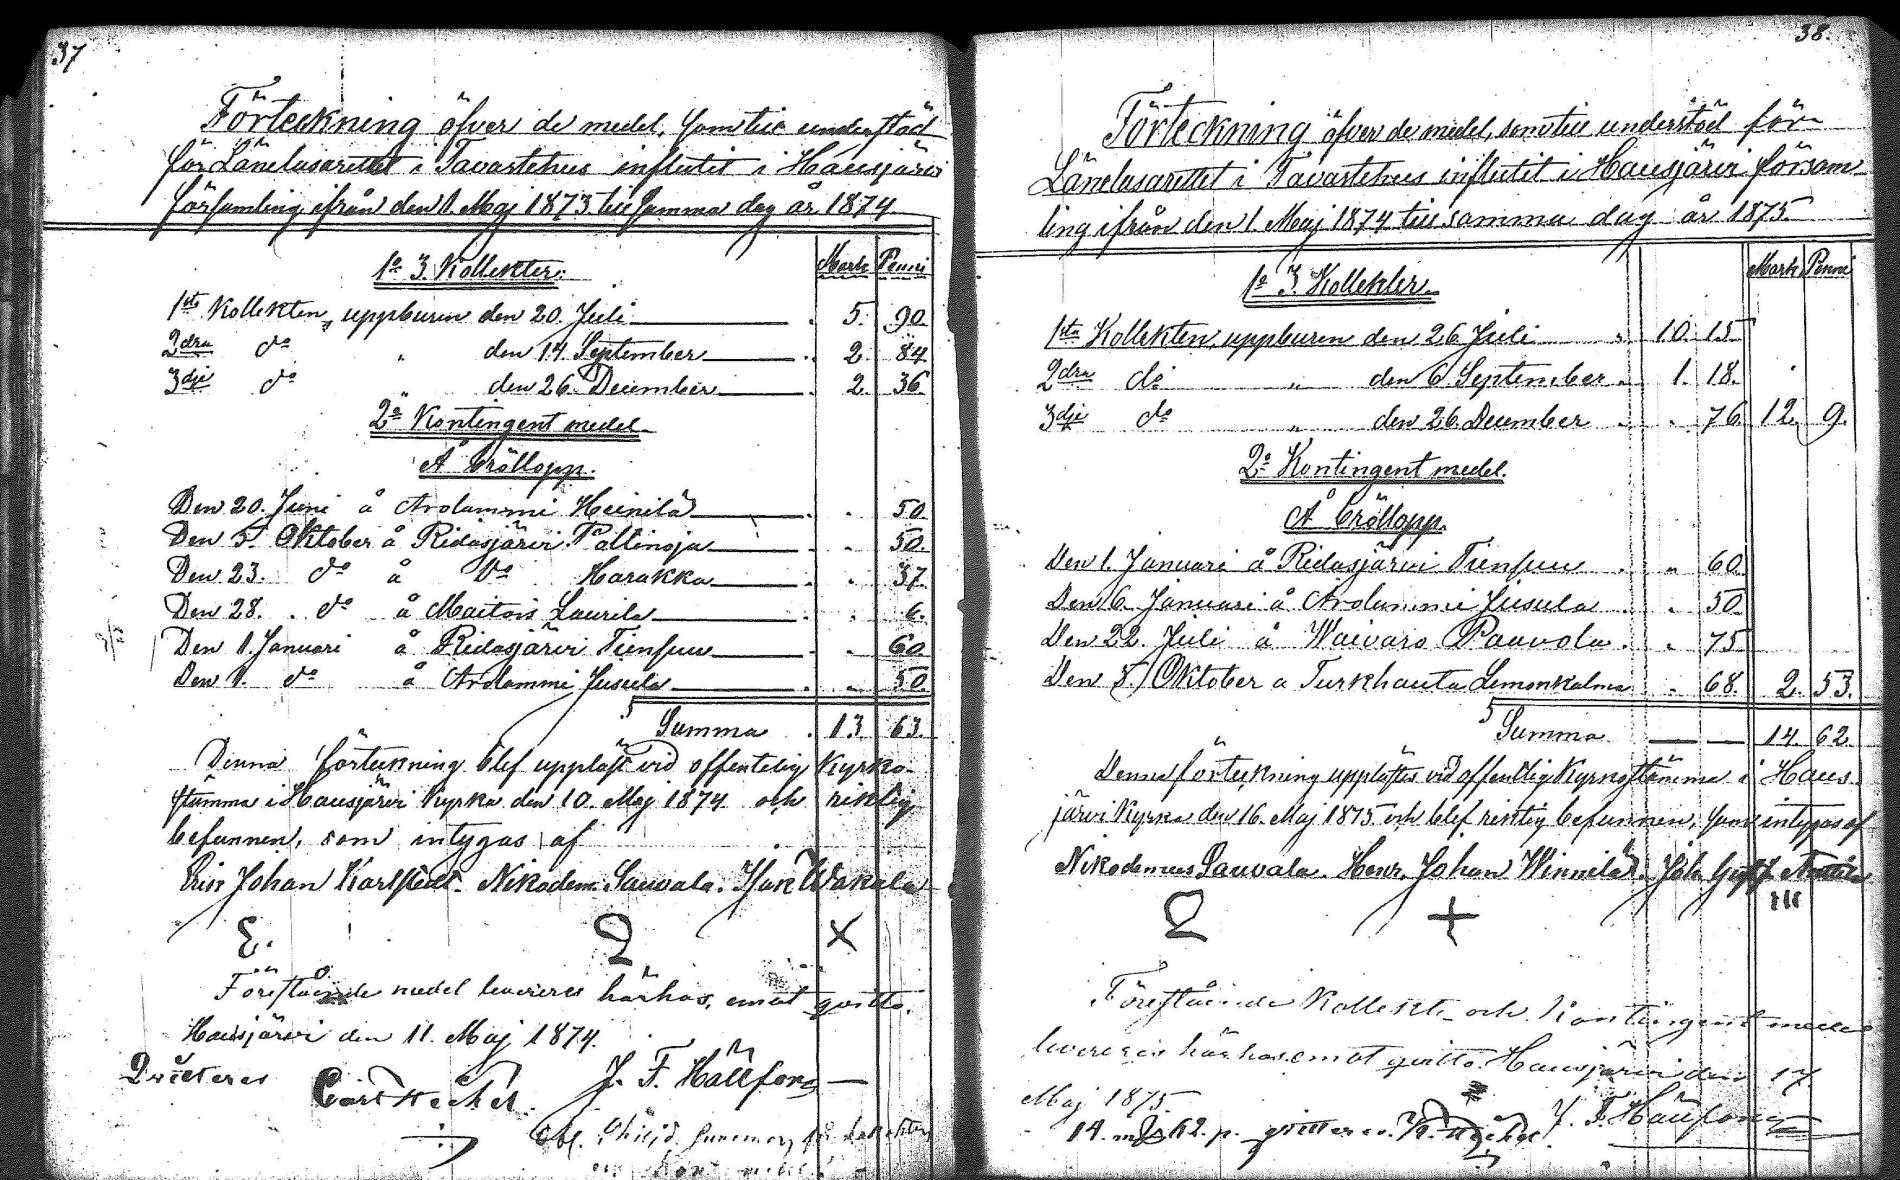 37
Förteckning öfver de medel, som till understöd
för Länelasarettet i Tavastehus influtit i Hausjärvi
församling ifrån den 1. Maj 1873 till samma dag år 1874
Mark Penni
1º 3. Kollekter.
1sta Kollekten, uppburen den 20. Juli . 5. 90
2dra dº " den 14. September . 2. 84
3dje dº " den 26. December . 2. 36
2º Kontingent medel.
Å bröllopp.
Den 20. Juni å Arolammi Heinilä . . 50
Den 5. Oktober å Ridasjärvi Paltinoja . . 50.
Den 23. dº å dº Harakka . . 37
Den 28. dº å Maitois Laurila . . 6.
Den 1. Januari å Ridasjärvi Tiensuu . . 60
Den 1. dº å Arolammi Jusula . . 50.
Summa . 13. 63.
Denna förteckning blef uppläst vid offentelig Kyrko-
stämma i Hausjärvi Kyrka den 10. Maj 1874 och riktig
befunnen, som intygas af
Erik Johan Karlstedt. Nikodem. Sauvala. Isak Wakala
Föreståènde medel levereres härhos, emot qvitto.
Hausjärvi den 11. Maj 1874.
J. F. Hällfors
Qvitteres
38.
Förteckning öfver de medel, som till understöd för
Länelasarettet i Tavastehus influtit i Hausjärvi församling
ling ifrån den 1. Maj 1874 till samma dag år 1875
Mark Penni
1º 3. Kollekter.
1sta Kollekten, uppburen den 26 Juli " 10. 15
2dra dº " den 6 September . 1. 18.
3dje dº " den 26 December . . 76. 12. 9.
2º Kontingent medel.
Å bröllopp.
Den 1. Januari å Ridasjärvi Tiensuu . " 60
Den 6. Januari å Arolammi Jusula . . 50
Den 22. Juli å Waivaro Paavola . . 75
Den 8. Oktober a Turkhauta Lemonkalma . 68. 2. 53.
Summa 14. 62
Denna förteckning upplästes vid offentlig Kyrkostämma i Haus-
järvi Kyrka den 16. Maj 1875 och blef riktig befunnen, som intygas af
Nikodemus Sauvala. Henr. Johan Winnilä. Joh. Gust.
Föreståènde Kollekt- och Kontingent medel
levereres härhos emot qvitto. Hausjärvi den 17.
Maj 1875
J. F. Hällfors
14. 62. p. qvitteres.